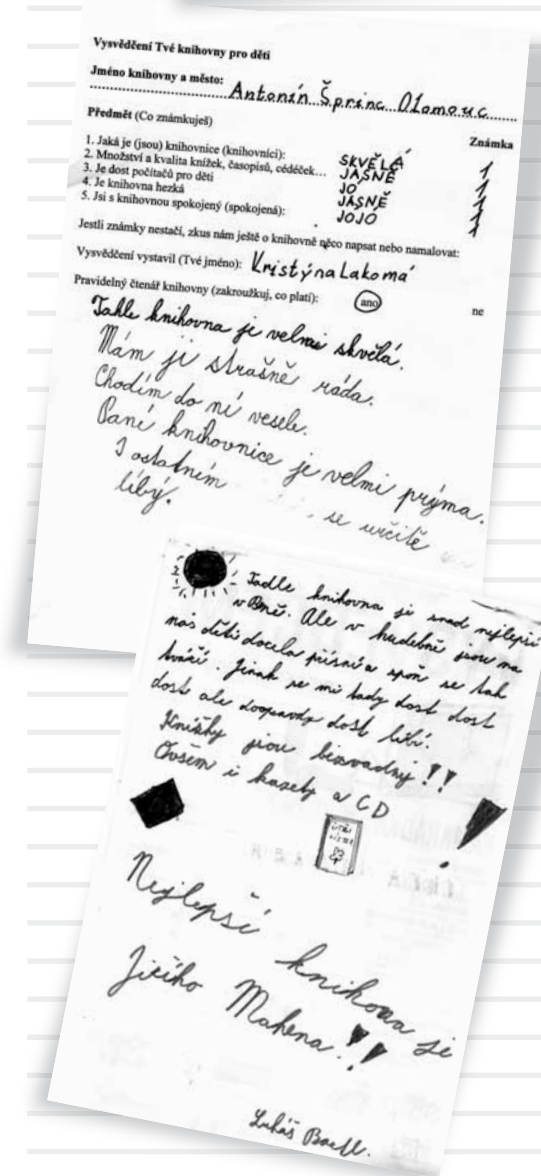 Vysvědčení Tvé knihovny pro děti
Jméno knihovny a město: Antonín Šprinc Olomouc
Předmět (Co známkuješ) Známka
1. Jaká je (jsou) knihovnice (knihovníci): SKVĚLÁ 1
2. Množství a kvalita knížek, časopisů, cédéček... JASNĚ 1
3. Je dost počítačů pro děti JO 1
4. Je knihovna hezká JASNĚ 1
5. Jsi s knihovnou spokojený (spokojená): JOJO 1
Jestli známky nestačí, zkus nám ještě o knihovně něco napsat nebo namalovat:
Vysvědčení vystavil (Tvé jméno): Kristýna Lakomá
Pravidelný čtenář knihovny (zakroužkuj, co platí): ano ne
Tahle knihovna je velmi skvělá.
Mám ji strašně ráda.
Chodím do ní vesele.
Paní knihovnice je velmi príma.
I ostatním se určitě
líbý.
Tadle knihovna je snad nejlepší
v Brně. Ale v hudebně jsou na
nás děti docela přísní a spoň se tak
tváří. Jinak se mi tady dost dost
dost ale doopravdy dost líbí.
Knížky jsou bezvadný!!
Ovšem i kazety a CD!
Nejlepší knihovna je
Jiřího Mahena!!
Lukáš